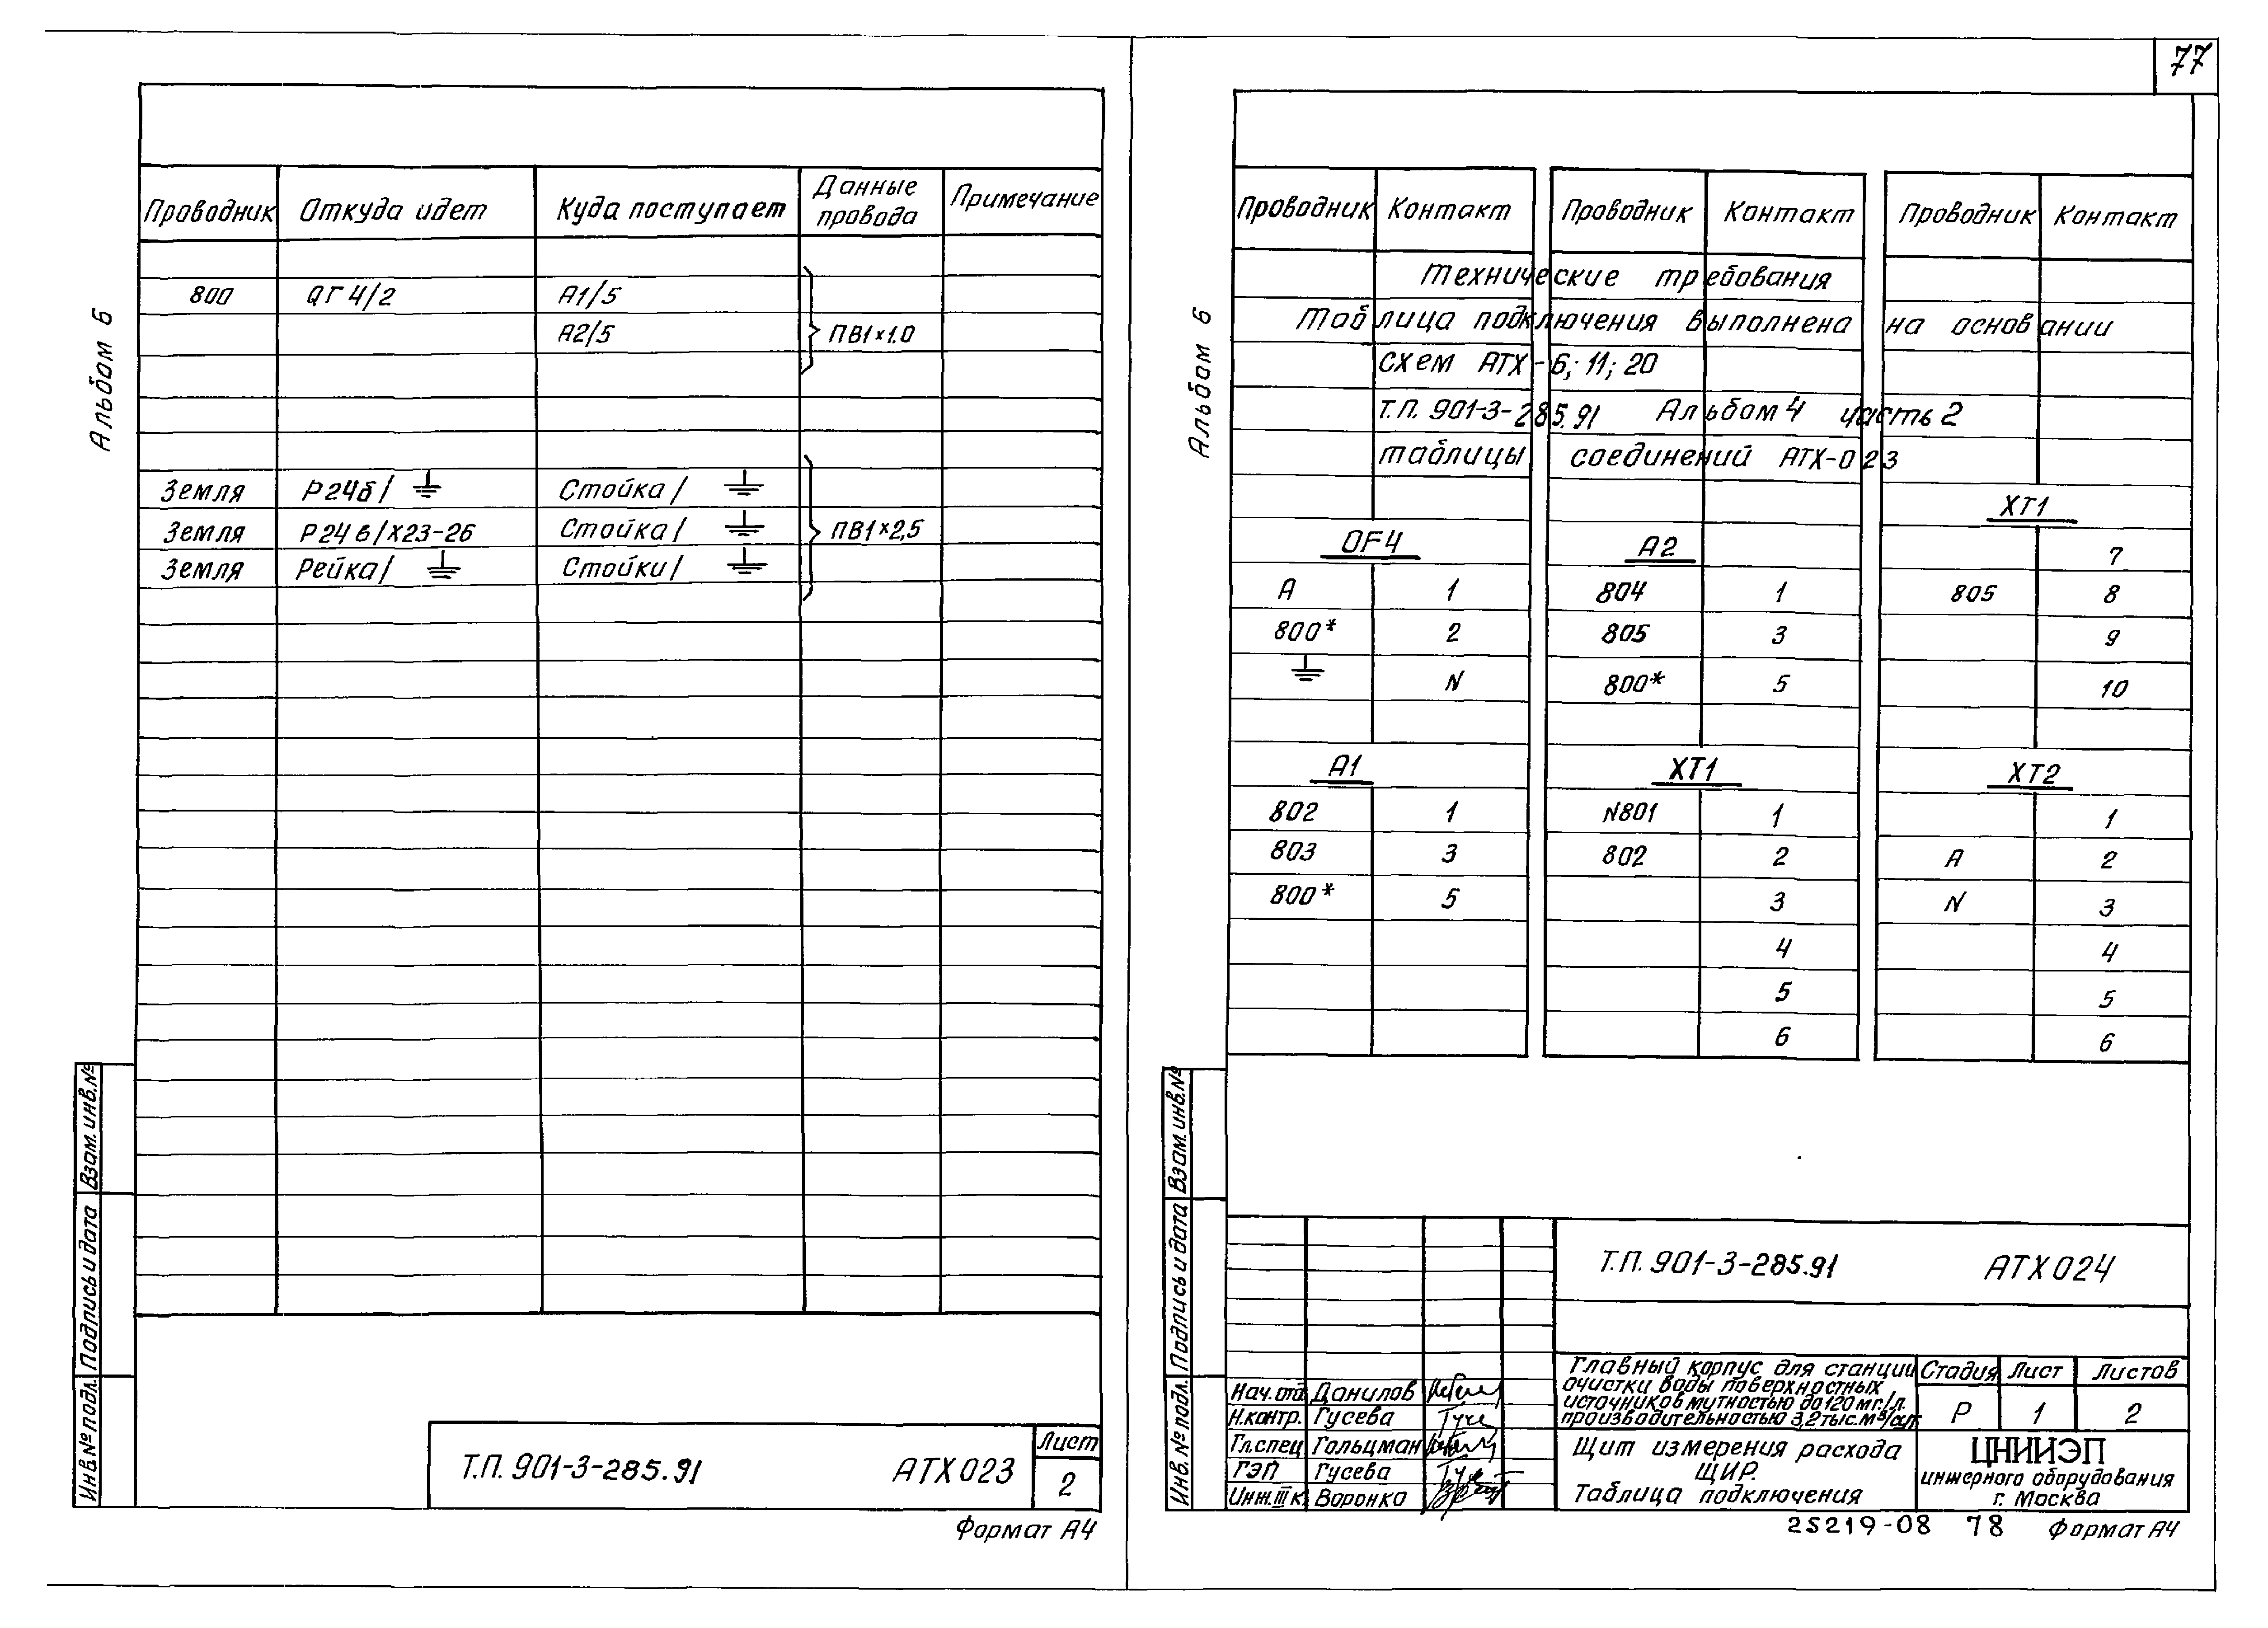 77
Альбом 6
Проводник Откуда идет Куда поступает Данные провода Примечание
800 QГ4/2 А1/5
А2/5 ПВ1×1.0
Земля Р24б/ ⏚ Стойка/ ⏚
Земля Р24в/Х23-26 Стойка/ ⏚ ПВ1×2,5
Земля Рейка/ ⏚ Стойки/ ⏚
Взам. инв.№
Подпись и дата
Инв.№ подл.
Т.П. 901-3-285.91 АТХ023
Лист
2
Формат А4
Альбом 6
Проводник Контакт Проводник Контакт Проводник Контакт
Технические требования
Таблица подключения выполнена на основании
схем АТХ-6; 11; 20
Т.П. 901-3-285.91 Альбом 4 часть 2
таблицы соединений АТХ-023
ХТ1
QF4 А2 7
А 1 804 1 805 8
800* 2 805 3 9
⏚ N 800* 5 10
А1 ХТ1 ХТ2
802 1 N801 1 1
803 3 802 2 А 2
800* 5 3 N 3
4 4
5 5
6 6
Взам. инв.№
Подпись и дата
Инв.№ подл.
Т.П. 901-3-285.91 АТХ024
Нач.отд. Данилов
Н.контр. Гусева
Гл.спец Гольцман
ГЭП Гусева
Инж.III к. Воронко
Главный корпус для станции
очистки воды поверхностных
источников мутностью до 120 мг./л.
производительностью 3,2 тыс.м³/сут
Стадия Лист Листов
Р 1 2
Щит измерения расхода
ЩИР.
Таблица подключения
ЦНИИЭП
инженерного оборудования
г. Москва
25219-08 78 Формат А4